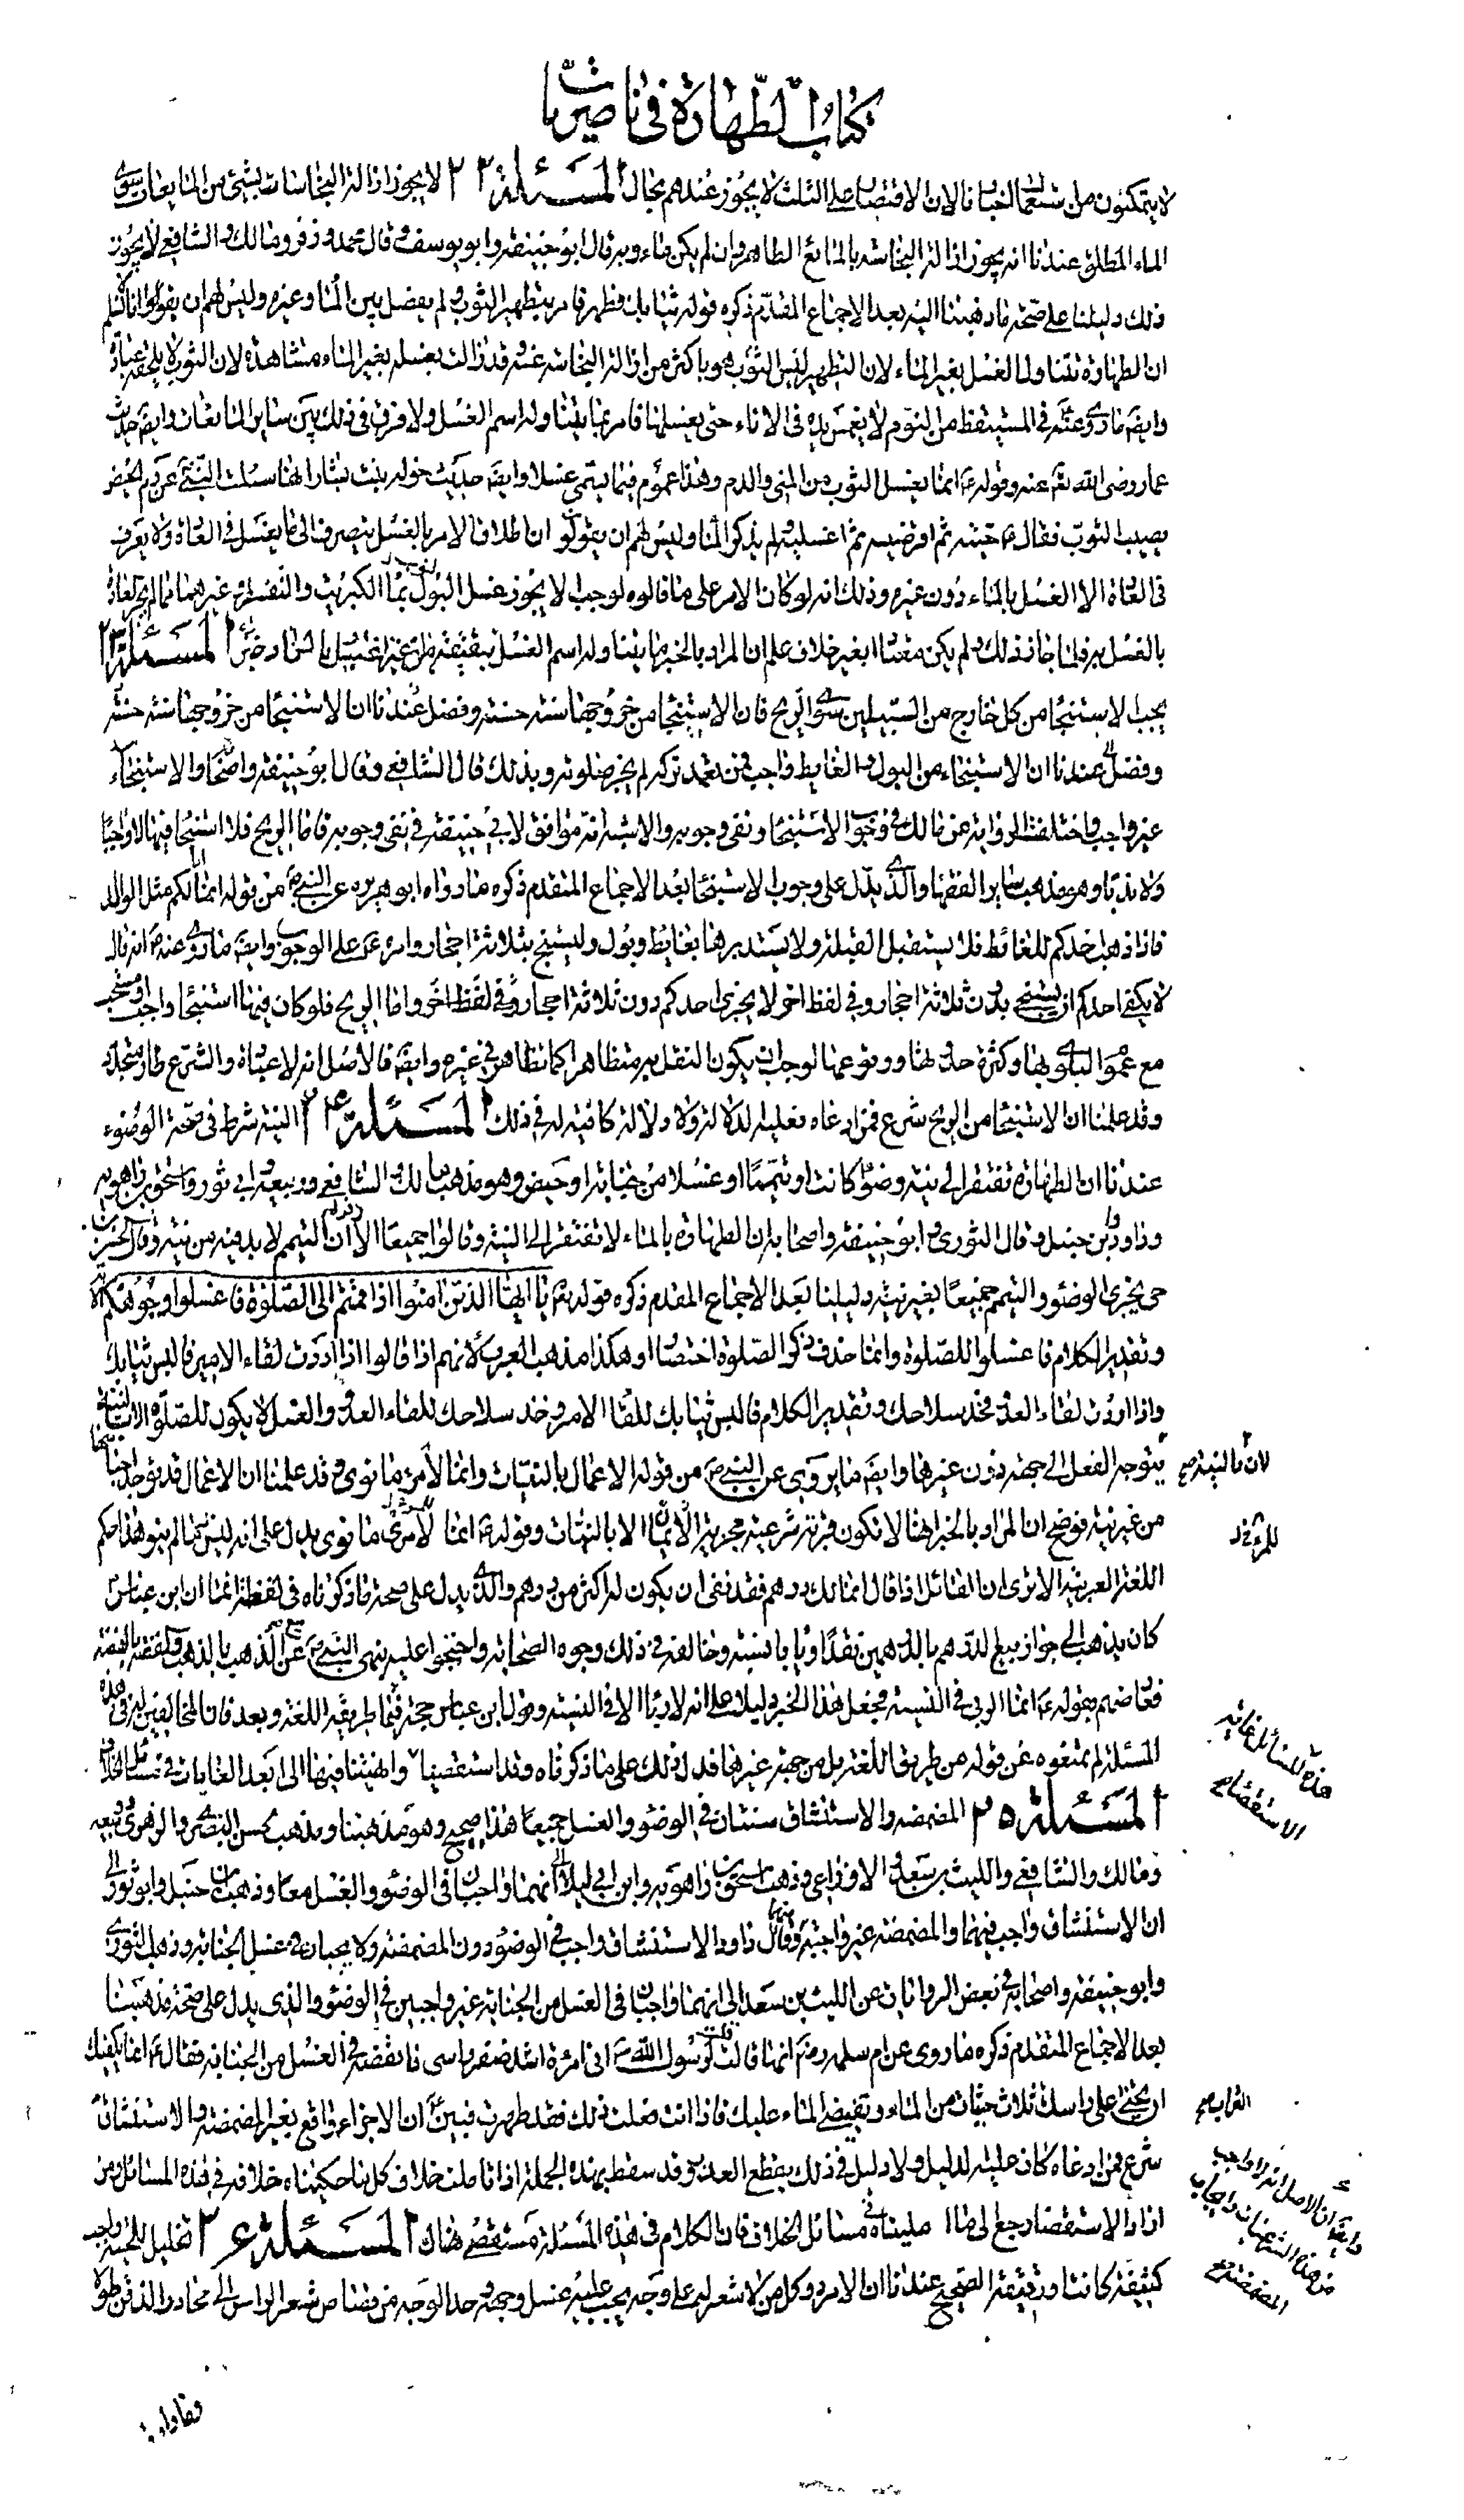 كتاب الطهارة في ناصريات
لا يتمكنون من استعمال الخبر فانا لان الاقتصار على الثلث لا يجوز عندهم بحال المسئلة ٢٢ لا يجوز ازالة النجاسات بشئ من المايعات سوى
الماء المطلق عندنا انه يجوز ازالة النجاسة بالمايع الطاهر وان لم يكن ماء وبه قال ابو حنيفة وابو يوسف وقال محمد وزفر ومالك والشافعي لا يجوز
ذلك دليلنا على صحة ما ذهبنا اليه بعد الاجماع المقدم ذكره قوله تع وثيابك فطهر فامر بتطهير الثوب ولم يفصل بين الماء وغيره وليس لهم ان يقولوا انا لا نسلم
ان الطهارة تتناول الغسل بغير الماء لان تطهير الثوب ليس هو باكثر من ازالة النجاسة عنه وقد زالت بغسله بغير الماء مشاهدة لان الثوب لا يلحقه عبادة
وايضا ما روى عنه في المستيقظ من النوم لا يغمس يده في الاناء حتى يغسلها فامر بما يتناوله اسم الغسل ولا فرق في ذلك بين ساير المايعات وايضا حديث
عمار رضى الله تع عنه وقوله ع انما يغسل الثوب من المنى والدم وهذا عموم فيما يسمى غسلا وايضا حديث خولة بنت يسار انها سئلت النبي ع عن دم الحيض
يصيب الثوب فقال ع حتيه ثم اقرضيه ثم اغسليه ولم يذكر الماء وليس لهم ان يقولوا ان اطلاق الامر بالغسل ينصرف الى ما يغسل في العادة ولا يعرف
في العادة الا الغسل بالماء دون غيره وذلك انه لو كان الامر على ما قالوه لوجب لا يجوز غسل الثوب بماء الكبريت والنفط وغيرهما مما لم يجر العادة
بالغسل به فلما جاز ذلك ولم يكن معتادا بغير خلاف علم ان المراد بالخبر ما يتناوله اسم الغسل حقيقة من غير اعتبار بالعادة المسئلة ٢٣
يجب الاستنجاء من كل خارج من السبيلين سوى الريح فان الاستنجاء من خروجها سنة حسنة وفضل عندنا ان الاستنجاء من خروجها سنة حسنة
وفضل عندنا ان الاستنجاء من البول والغايط واجب فمن تعمد تركه لم يجز صلوته وبذلك قال الشافعي وقال ابو حنيفة واصحابه الاستنجاء
غير واجب واختلفت الرواية عن مالك في وجوب الاستنجاء ونفى وجوبه والاشبه انه موافق لابي حنيفة في نفى وجوبه فاما الريح فلا استنجاء فيها لا واجبا
ولا ندبا وهو مذهب ساير الفقهاء والذي يدل على وجوب الاستنجاء بعد الاجماع المتقدم ذكره ما رواه ابو هريرة عن النبي ص من قوله انما انا لكم مثل الوالد
فاذا ذهب احدكم للغائط فلا يستقبل القبلة ولا يستدبرها بغايط وبول وليستنج بثلاثة احجار وامره ع على الوجوب وايضا ما روى عنه ع انه قال
لا يكفى احدكم ان يستنجى بدون ثلاثة احجار وفي لفظ اخر لا يجزى احدكم دون ثلاثة احجار واما الريح فلو كان فيها استنجاء واجب او مستحب
مع عموم البلوى بها وكثرة حدوثها ووقوعها لوجب ان يكون النقل به متظاهرا كما تظاهر في غيره وايضا فالاصل انه لا عبادة والشرع طار متجدد
وقد علمنا ان الاستنجاء من الريح شرع فمن ادعاه فعليه الدلالة ولا دلالة كافية له في ذلك المسئلة ٢٤ النية شرط في صحة الوضوء
عندنا ان الطهارة تفتقر الى نية وضوء كانت او تيمما او غسلا من جنابة او حيض وهو مذهب مالك والشافعي وربيعة وابي ثور واسحق بن راهويه
وداود وابن حنبل وقال الثوري وابو حنيفة واصحابه ان الطهارة بالماء لا تفتقر الى النية وقالوا جميعا الا زفر ان التيمم لا بد فيه من نية وقال الحسن بن
حى يجزى الوضوء والتيمم جميعا بغير نية دليلنا بعد الاجماع المقدم ذكره قوله تع يا ايها الذين امنوا اذا قمتم الى الصلوة فاغسلوا وجوهكم الآية
وتقدير الكلام فاغسلوا للصلوة وانما حذف ذكر الصلوة اختصارا وهكذا مذهب العرب لانهم اذا قالوا اذا اردت لقاء الامير فالبس ثيابك
واذا اردت لقاء العدو فخذ سلاحك وتقدير الكلام فالبس ثيابك للقاء الامير وخذ سلاحك للقاء العدو والغسل لا يكون للصلوة الا بالنية
يتوجه الفعل الى جهة دون غيرها وايضا ما يروى عن النبي ص من قوله الاعمال بالنيات وانما لامرئ ما نوى وقد علمنا ان الاعمال قد توجد اجناسها
من غير نية فوضح ان المراد بالخبر انها لا تكون قربة شرعية مجزية الا بالنيات وقوله ع انما لامرئ ما نوى يدل على انه ليس له ما لم ينو هذا حكم
اللغة العربية الا ترى ان القائل اذا قال انما لك درهم فقد نفى ان يكون له اكثر من درهم والذي يدل على صحة ما ذكرناه في لفظة انما ان ابن عباس
كان يذهب الى جواز بيع الدرهم بالدرهمين نقدا ويابى نسية وخالفه في ذلك وجوه الصحابة واحتجوا عليه بنهى النبي ص عن بيع الذهب بالذهب والفضة بالفضة
فعارضهم بقوله ع انما الربى في النسية فجعل هذا الخبر دليلا على انه لا ربا الا في النسية وقول ابن عباس حجة فيما طريقه اللغة وبعد فان المخالفين له في هذه
المسئلة لم يمنعوه عن قوله من طريق اللغة بل من جهة غيرها فدل ذلك على ما ذكرناه وقد استقصينا وانتهينا فيها الى ابعد الغايات في مسائل الخلاف
المسئلة ٢٥ المضمضة والاستنشاق سنتان في الوضوء والغسل جميعا هذا صحيح وهو مذهبنا ومذهب حسن البصرى والزهرى وربيعه
ومالك والشافعي والليث بن سعد والاوزاعى وذهب اسحق بن راهويه وابن ابي ليلى الى انهما واجبان في الوضوء والغسل معا وذهب ابن حنبل وابو ثور الى
ان الاستنشاق واجب فيهما والمضمضة غير واجبة فيهما وقال داود الاستنشاق واجب في الوضوء دون المضمضة ولا يجبان في غسل الجنابة وذهب الثورى
وابو حنيفة واصحابه في بعض الروايات عن الليث بن سعد الى انهما واجبان في الغسل من الجنابة غير واجبين في الوضوء والذى يدل على صحة مذهبنا
بعد الاجماع المتقدم ذكره ما روى عن ام سلمه رض انها قالت قلت لرسول الله ص انى امرءة اشد ضفر راسى فانقضه في الغسل من الجنابة فقال ع انما يكفيك
ان تحثى على راسك ثلاث حثيات من الماء وتفيضى الماء عليك فاذا انت فعلت ذلك فقد طهرت فبين ع ان الاجزاء واقع بغير المضمضة والاستنشاق
شرع فمن ادعاه كان عليه الدليل ولا دليل في ذلك يقطع العذر وقد سقط بهذه الجملة اذا تاملت خلاف كل من حكيناه خلافه في هذه المسائل ومن
اراد الاستقصاء رجع الى ما امليناه في مسائل الخلاف فان الكلام في هذه المسئلة مستقصى هناك المسئلة ٢٦ تخليل اللحية واجب
كثيفة كانت او رقيقة الصحيح عندنا ان الامرد وكل من لا شعر له على وجهه يجب عليه غسل وجهه وحد الوجه من قصاص شعر الراس الى محادر الذقن طولا
لان بالنية صح
للمرء خ د
هذه المسائل غاية
الاستقصاء
التراب صح
وايضا فان الاصل انه لا واجب
المضمضة صح